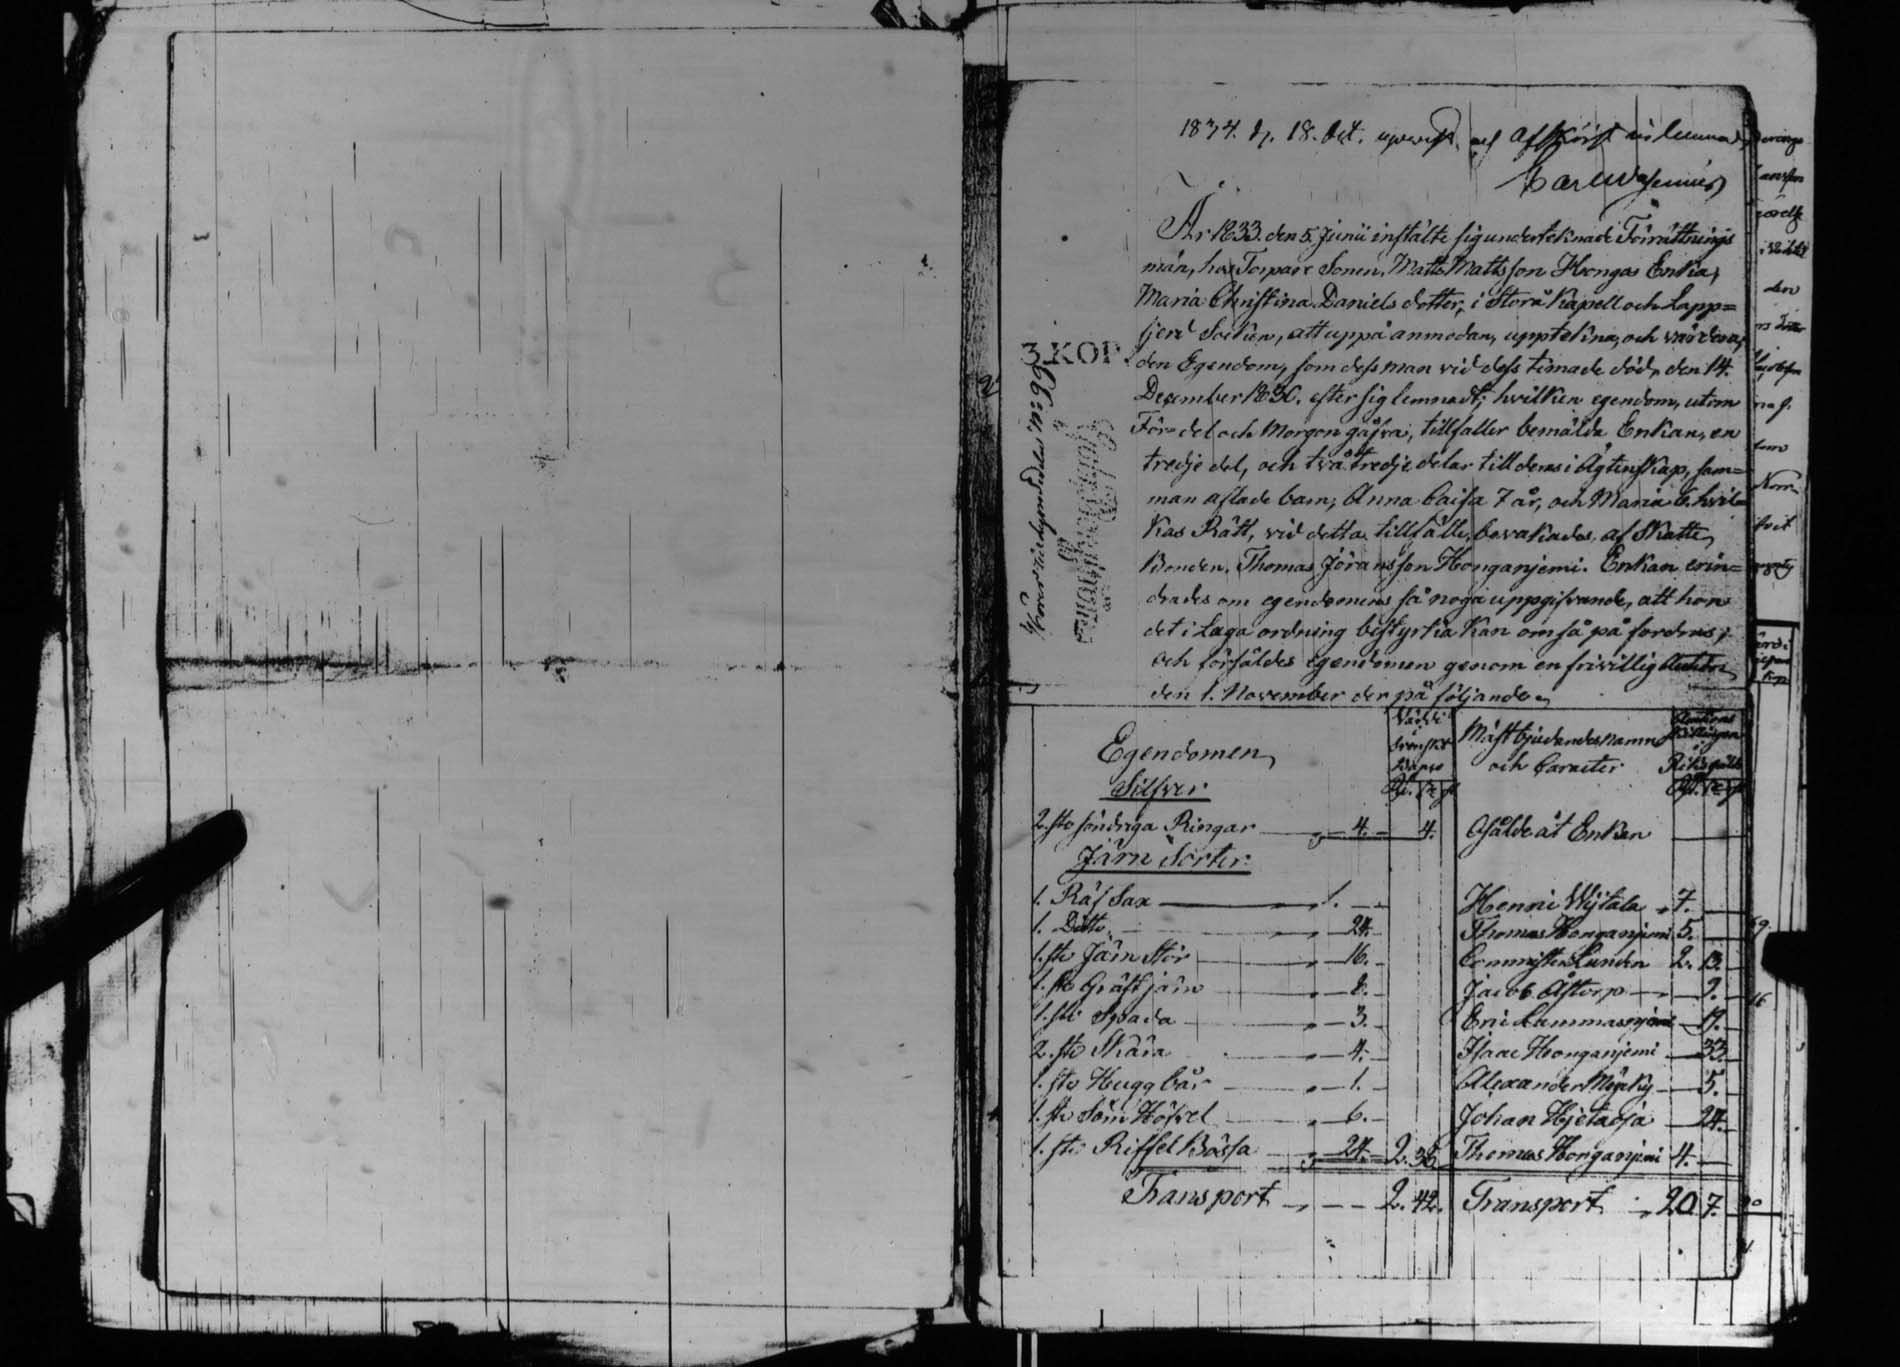 1834. d. 18. Oct. upvist och afskrift inlemnad,
Carl Wasenius
År 1833. den 5. Junii instälte sig underteknade Förrättnings
män, hos Torpare Sonen, Matts Mattsson Hongas Enka,
Maria Christina Daniels dotter, i Storå Kapell och Lapp=
fjerd Socken, att uppå anmodan, upptekna, och värdera,
den Egendom, som dess man vid dess timade död, den 14.
December 1830. efter sig lemnadt; hvilken egendom, utom
Fördel och Morgon gåfva, tillfaller bemälda Enkan, en
tredje del, och två tredje delar till deras i Ägtenskap, sam=
man aflade barn; Anna Caisa 7 år, och Maria 6. hvil=
kas Rätt, vid detta tillfälle, bevakades, af Skatte
Bonden, Thomas Jöransson Honganjemi. Enkan erin=
drades om egendomens så noga uppgifvande, att hon
det i Laga ordning bestyrka kan om så på fordras;
och försåldes egendomen genom en frivillig Auction
den 1. November der på följande.
3 KOP.
No 99
Egendomen
Värde
Svenskt
Banco
Mästbjudandes namn
och Caracter
Auctions
Riksgäld
Silfver
2. st. söndriga Ringar 4. 4. Afsålde åt Enkan
Järn Sorter
1. Räf Sax 1. Henric Wijtala 7.
1. Ditto 24. Thomas Honganjemi 5.
1. st. Järn Stör 16. Commiste Lunden 2. 13.
1. st. Gräft järn 8. Jacob Åstorp 9.
1. st. Spada 3. Eric Lammasnjemi 17.
2. st. Skära 4. Isaac Honganjemi 33.
1. st. Hugg bår 1. Alexander Myrky 5.
1. st. Söm Höfvel 6. Johan Hjetaoja 24.
1. st. Riffel Bössa 24. 2. 38. Thomas Honganjemi 4.
Transport 2. 42. Transport 20 7.